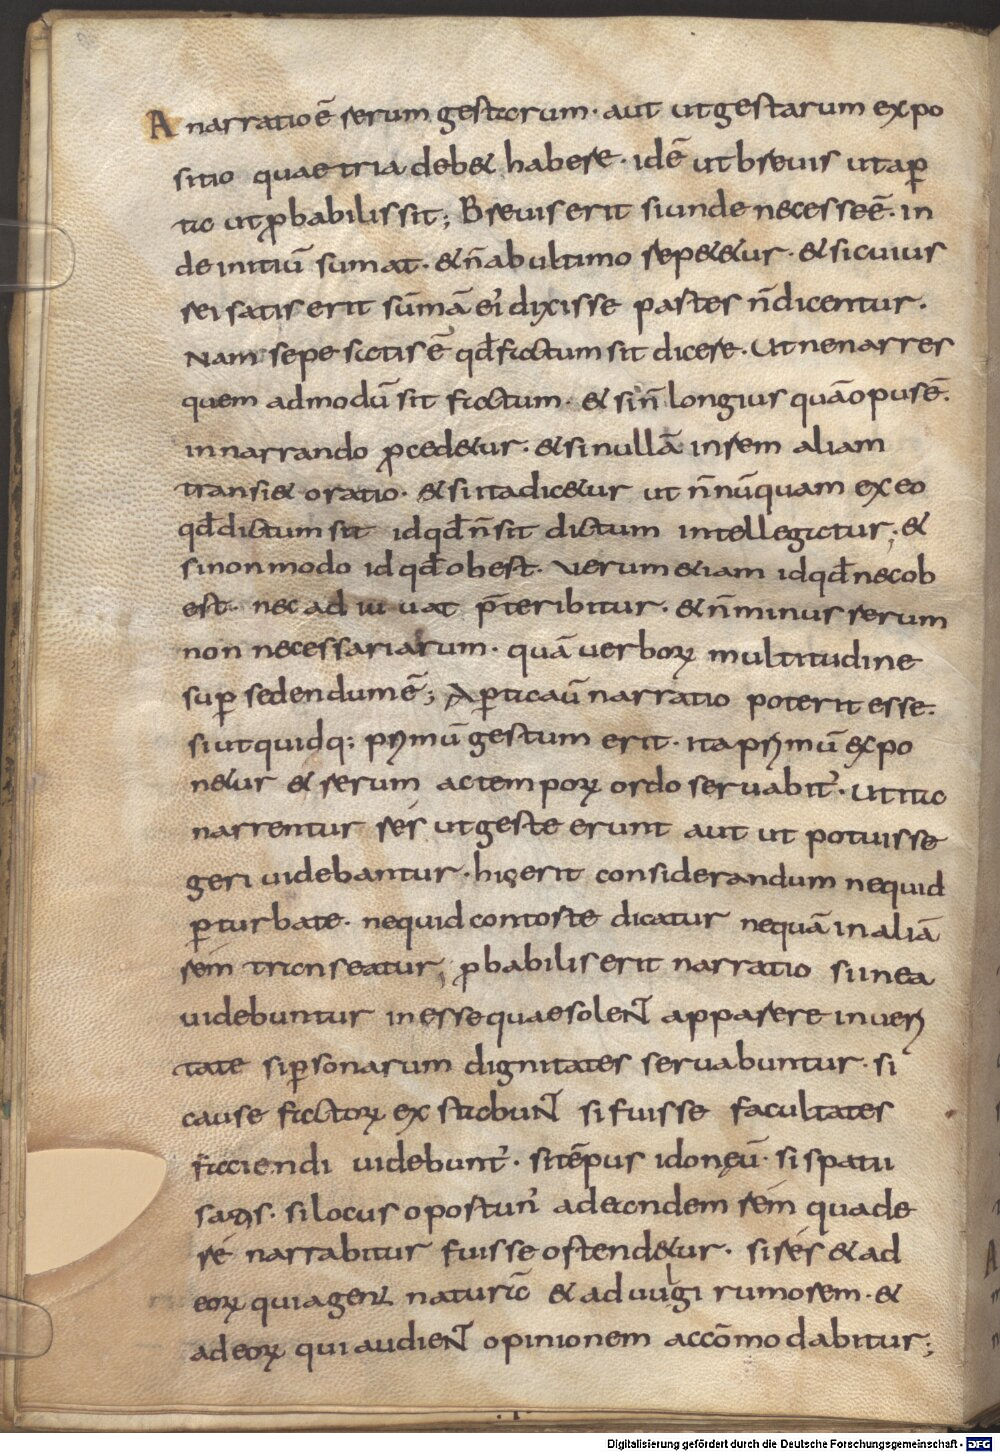 A narratio ē rerum gestarum· aut ut gestarum expo
sitio quae tria deb& habere· idē ut breuis ut aꝑ
ta ut ꝓbabilis sit; Breuis erit si unde necesse ē· in
de initiū sumat· & n̄ ab ultimo repet&ur· & si cuius
rei satis erit sūmā ei' dixisse partes n̄ dicentur·
Nam sepe satis ē qđ factum sit dicere· Ut ne narres
quem admodū sit factum· & si n̄ longius quā opus ē·
in narrando ꝓced&ur· & si nullā in rem aliam
transi& oratio· & si ita dic&ur ut n̄nūquam ex eo
qđ dictum sit id qđ n̄ sit dictum intellegatur; &
si non modo id qđ obest· uerum &iam id qđ nec ob
est· nec ad iu uat p̄teribitur· & n̄ minus rerum
non necessariarum· quā uerboꝝ multitudine
suꝑ sedendum ē; Aꝑta aū narratio poterit esse·
si ut quidq; prymū gestum erit· ita prymū expo
n&ur & rerum ac tempoꝝ ordo seruabit'· Ut ita
narrentur res ut geste erunt aut ut potuisse
geri uidebantur· hic erit considerandum nequid
ꝑturbate· nequid contorte dicatur nequā in aliā
rem transeatur; ꝓbabilis erit narratio si in ea
uidebuntur in esse quae solent apparere in ueri
tate si ꝑsonarum dignitates seruabuntur· si
cause factoꝝ ex stabunt si fuisse facultates
faciendi uidebunt'· si tēpus idoneū· si spatii
satis· si locus oportun' ad eandem rem qua de
re narrabitur fuisse ostend&ur· si res & ad
eoꝝ qui agent naturā & ad uulgi rumorem· &
ad eoꝝ qui audient opinionem accōmodabitur;
Digitalisierung gefördert durch die Deutsche Forschungsgemeinschaft - DFG